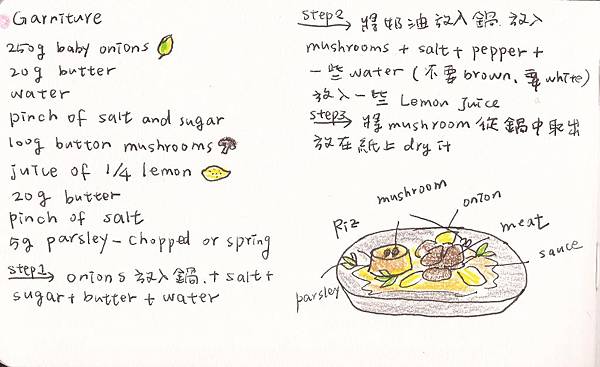 Garniture
250g baby onions
20g butter
water
pinch of salt and sugar
100g button mushrooms
juice of 1/4 lemon
20g butter
pinch of salt
5g parsley - chopped or spring
step1 → onions 放入鍋, + salt +
sugar + butter + water
step2 → 將奶油放入鍋 放入
mushrooms + salt + pepper +
一些 water (不要 brown, 要 white)
放入一些 Lemon Juice
step3 → 將 mushroom 從鍋中取出
放在紙上 dry it
mushroom
onion
Riz
meat
sauce
parsley